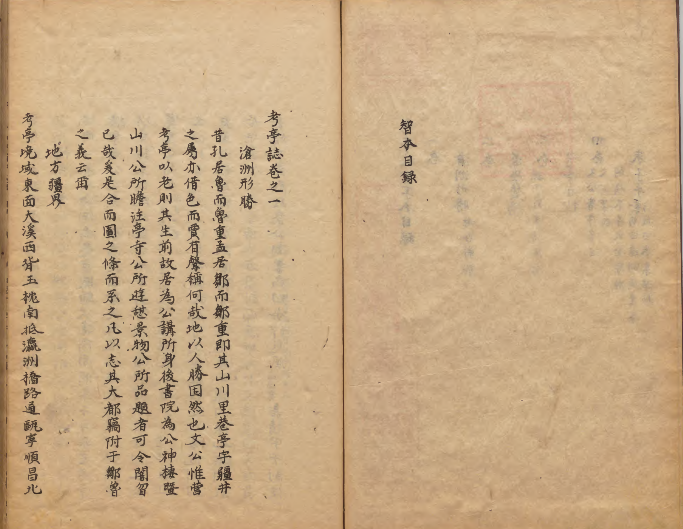 智本目録
考亭誌卷之一
滄洲形勝
昔孔居魯而魯重孟居鄒而鄒重即其山川里巷亭宇疆井
之屬亦借色而賈有聲稱何哉地以人勝固然也文公惟營
考亭以老則其生前故居為公講所身後書院為公神棲暨
山川公所瞻注亭寺公所遊憇景物公所品題者可令闇曶
已哉爰是合而圖之條而系之凡以志其大都竊附于鄒魯
之義云爾
地方疆界
考亭境域東面大溪西背玉枕南抵瀛洲橋路通甌寧順昌北